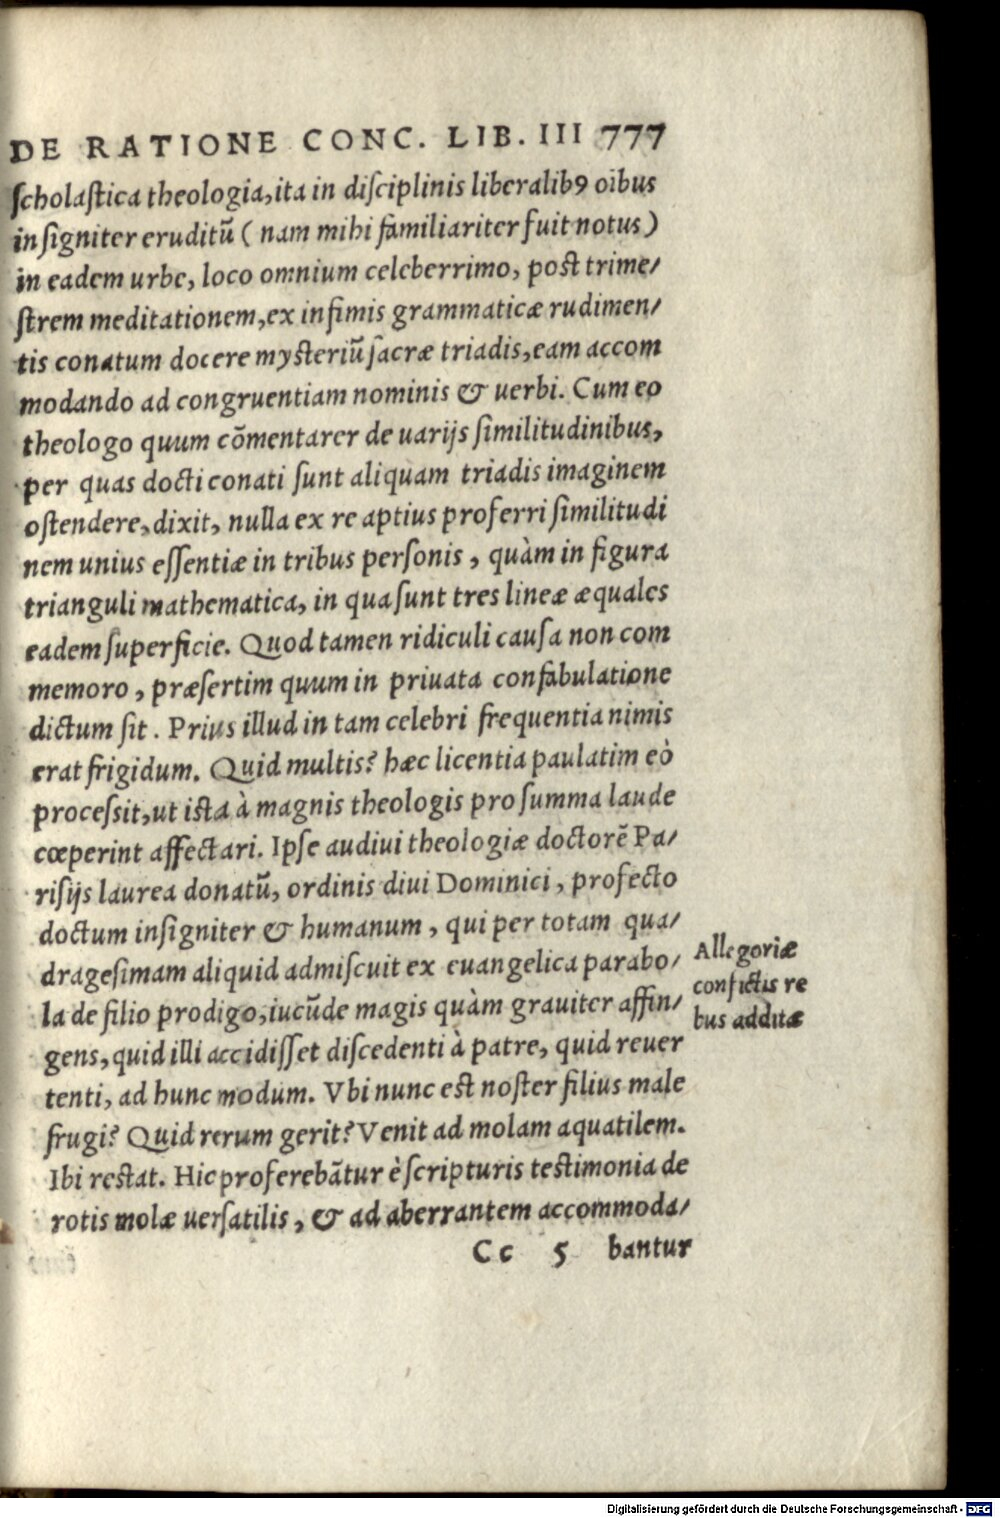 DE RATIONE CONC. LIB. III 777
ſcholaſtica theologia, ita in diſciplinis liberalibꝰ oībus
inſigniter eruditū ( nam mihi familiariter fuit notus )
in eadem urbe, loco omnium celeberrimo, poſt trime/
ſtrem meditationem, ex infimis grammaticæ rudimen/
tis conatum docere myſteriū ſacræ triadis, eam accom
modando ad congruentiam nominis & uerbi. Cum eo
theologo quum cōmentarer de uarijs ſimilitudinibus,
per quas docti conati ſunt aliquam triadis imaginem
oſtendere, dixit, nulla ex re aptius proferri ſimilitudi
nem unius eſſentiæ in tribus perſonis, quàm in figura
trianguli mathematica, in qua ſunt tres lineæ æquales
eadem ſuperficie. Quod tamen ridiculi cauſa non com
memoro, præſertim quum in priuata confabulatione
dictum ſit. Prius illud in tam celebri frequentia nimis
erat frigidum. Quid multis? hæc licentia paulatim eò
proceſſit, ut iſta à magnis theologis pro ſumma laude
cœperint affectari. Ipſe audiui theologiæ doctorē Pa/
riſijs laurea donatū, ordinis diui Dominici, profecto
doctum inſigniter & humanum, qui per totam qua/
drageſimam aliquid admiſcuit ex euangelica parabo/
la de filio prodigo, iucūde magis quàm grauiter affin/
gens, quid illi accidiſſet diſcedenti à patre, quid reuer
tenti, ad hunc modum. Vbi nunc eſt noſter filius male
frugi? Quid rerum gerit? Venit ad molam aquatilem.
Ibi reſtat. Hic proferebātur è ſcripturis teſtimonia de
rotis molæ uerſatilis, & ad aberrantem accommoda/
Cc 5 bantur
Allegoriæ
confictis re
bus additæ
Digitalisierung gefördert durch die Deutsche Forschungsgemeinschaft - DFG